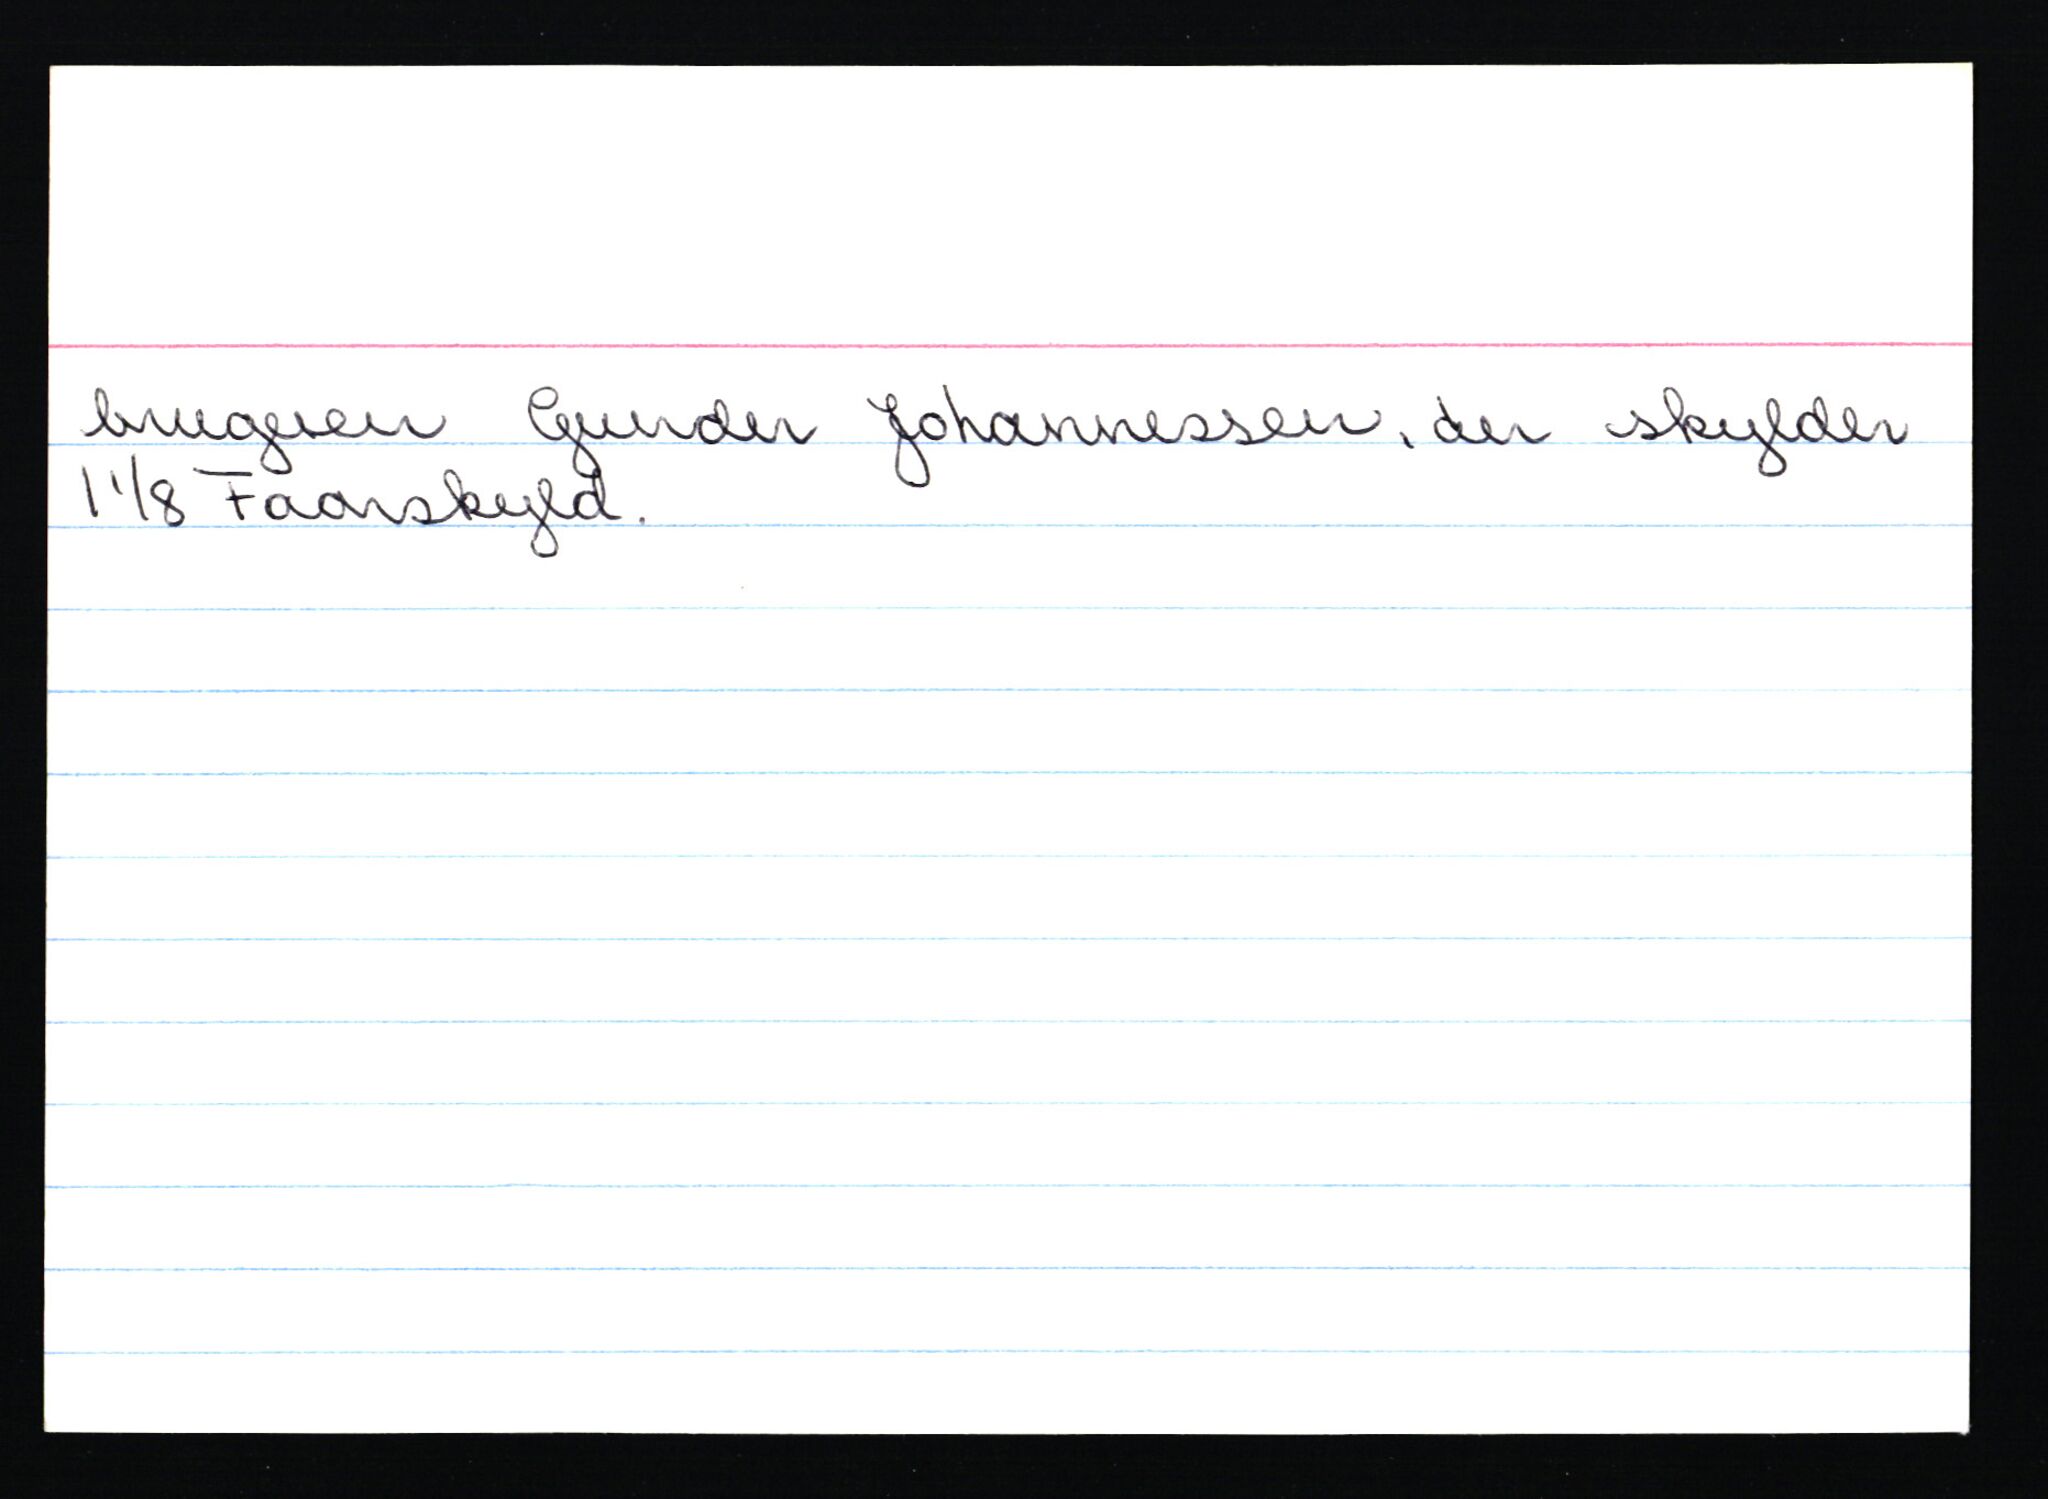 brugeren Gunder Johannessen, der skylder
1 1/8 Faarskyld.